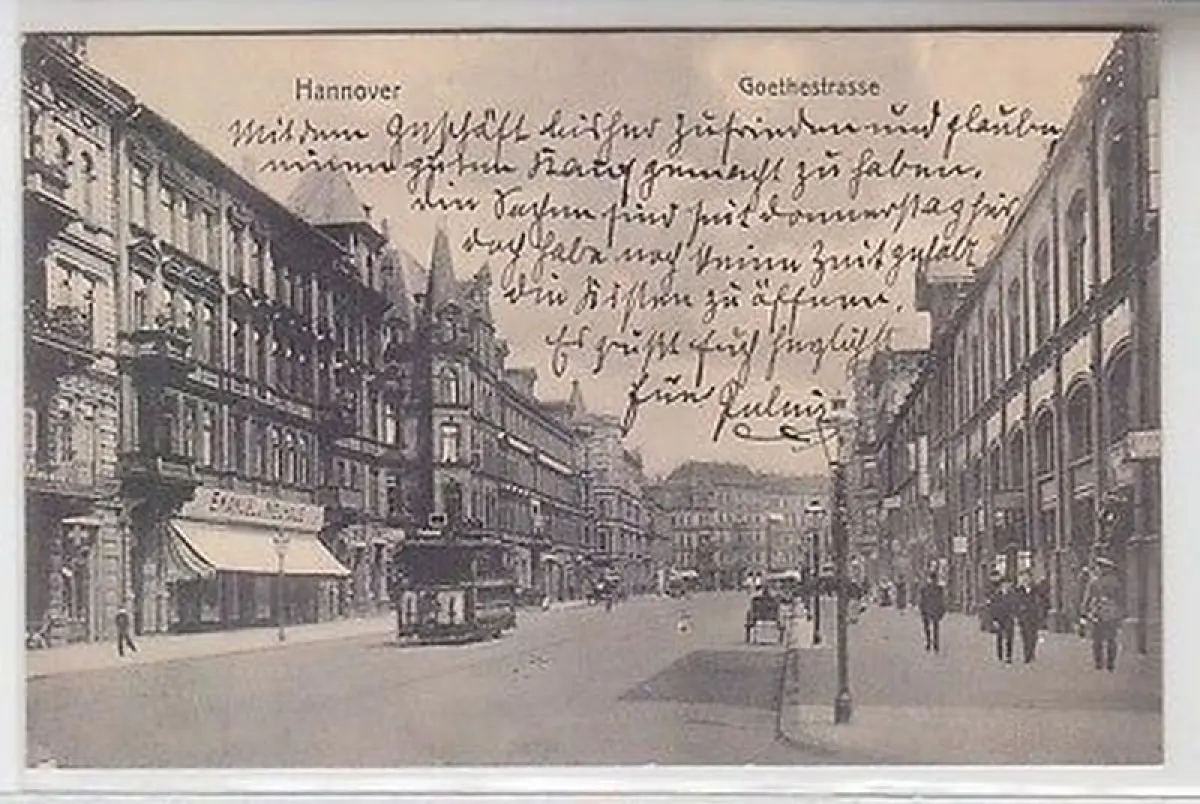 Hannover
Goethestrasse
Mit dem Geschäft bisher zufrieden und glaube,
einen guten Kauf gemacht zu haben.
Die Sachen sind seit Donnerstag hier
doch habe noch keine Zeit gehabt
die Kisten zu öffnen.
Es grüßt Euch herzlichst
EMANUEL